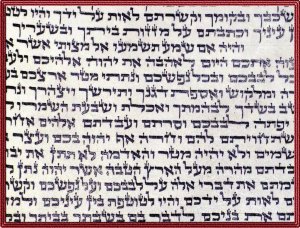 שכבך ובקומך וקשרתם לאות על ידך והיו לטט
עיניך וכתבתם על מזזות ביתך ובשעריך
והיה אם שמע תשמעו אל מצותי אשר א
אתכם היום לאהבה את יהוה אלהיכם
לבבכם ובכל נפשכם ונתתי מטר ארצכם ב
ומלקוש ואספת דגנך ותירשך
בשדך לבהמתך ואכלת ושבעת השמרו
יפתה לבבכם וסרתם ועבדתם אלהים אחרים
להם וחרה אף יהוה בכם ועצר
שמים ולא יהיה מטר והאדמה לא תתן את יב
מהרה מעל הארץ הטבה אשר יהוה נתן
את דברי אלה על לבבכם ועל נפשכם
לאות על ידכם והיו לטוטפת בין עיניכם ולמד
תם את בניכם לדבר בם בשבתך בביתך